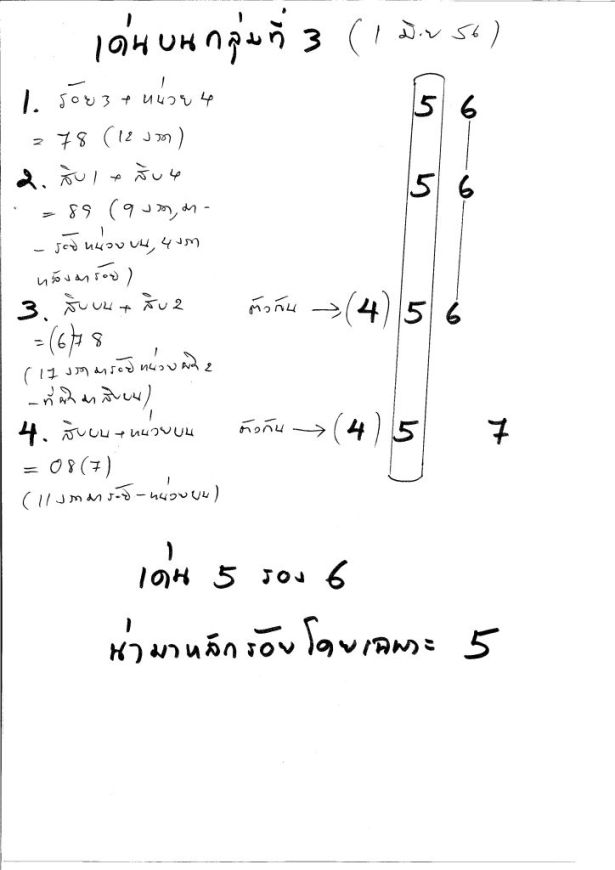 เด่นบนกลุ่มที่ 3 (1 มิ.ย 56)
1. ร้อย3 + หน่วย4 5 6
= 78 (12 งวด)
2. สิบ1 + สิบ4 5 6
= 89 (9 งวด, มา-
- ร้อยหน่วยบน, 4 งวด
หลังมาร้อย)
3. สิบบน + สิบ2 ตัวกัน → (4) 5 6
= (6)78
(17 งวดมาร้อยหน่วยผิด2
- ที่ผิดมาสิบบน)
4. สิบบน + หน่วยบน ตัวกัน → (4) 5 7
= 08(7)
(11 งวดมาร้อย-หน่วยบน)
เด่น 5 รอง 6
น่ามาหลักร้อยโดยเฉพาะ 5